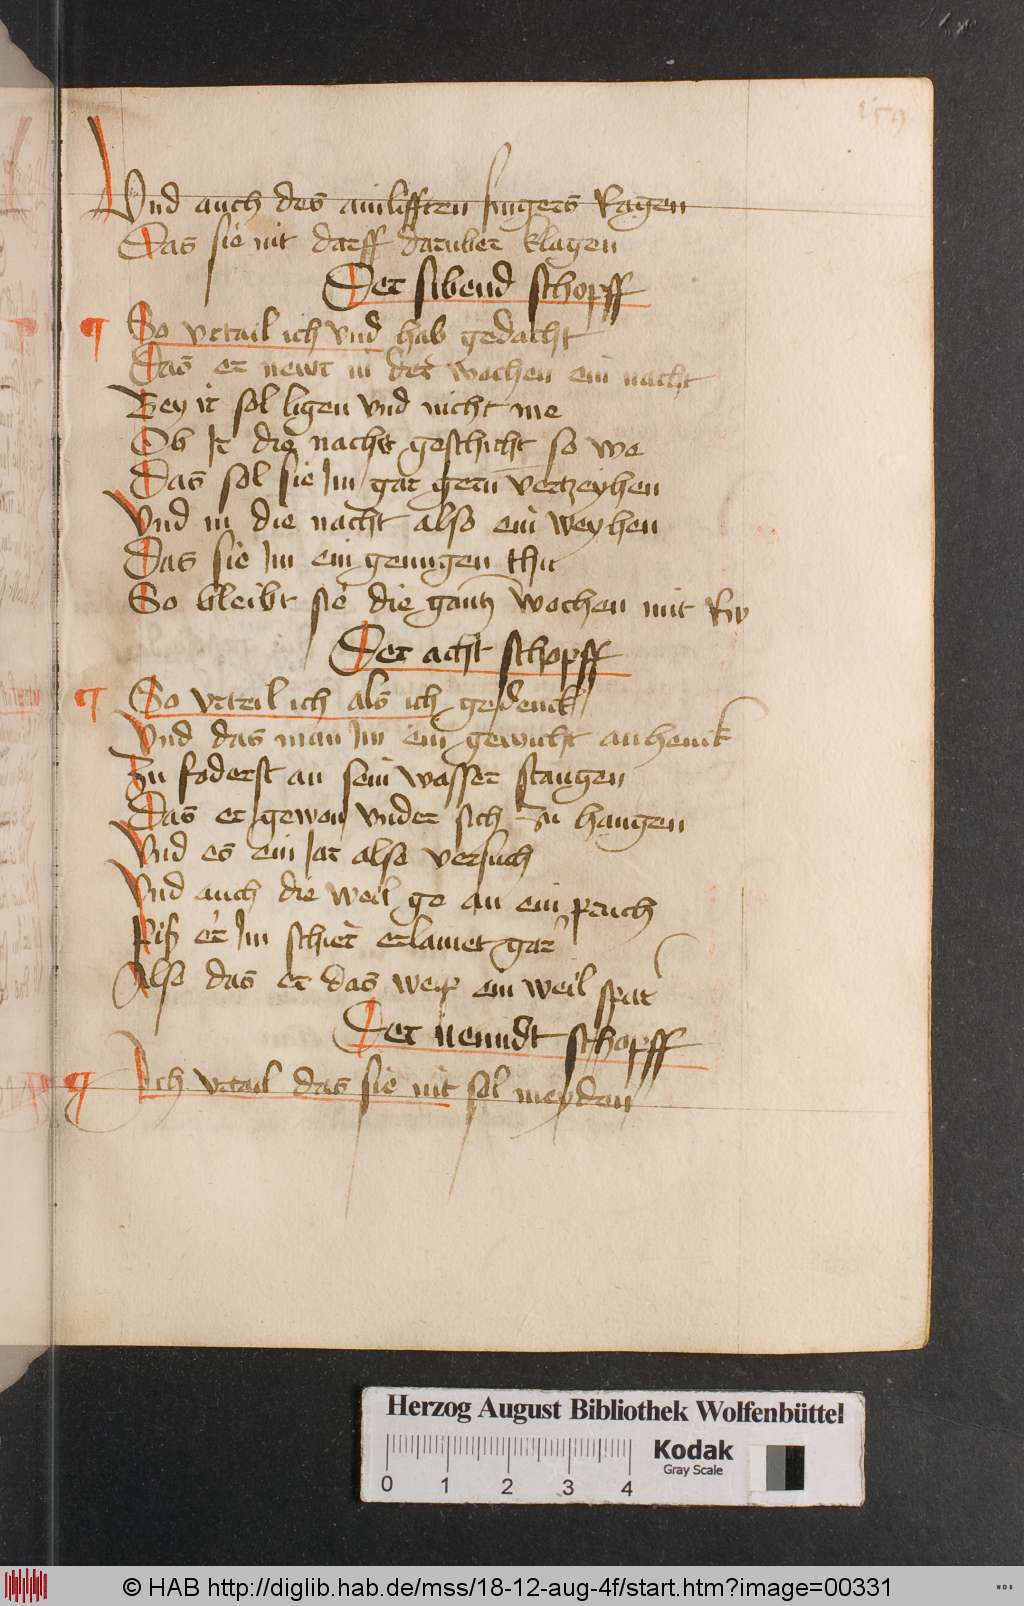 159
Vnd auch des ainlifften fingers Ragen
Das sie nit darff daruber klagen
Der sibend schopff
¶ So vrtail ich vnd hab gedacht
Das er newr in der wochen ein nacht
Bey ir sol ligen vnd nicht me
Ob Ir die nacht geschicht so we
Das sol sie Im gar gern vertzeyhen
Vnd in die nacht also ein weyhen
Das sie Im ein genugen thu
So bleibt sie die gantz wochen mit Rw
Der acht schopff
¶ So vrteil ich als ich gedenck
Vnd das man Im ein gewicht anhenck
Zu foderst an sein wasser stangen
Das er gewon vnder sich zu hangen
Vnd es ein Jar also versuch
Vnd auch die weil ge an ein pruch
Piß er Im schier erlamet gar
Also das er das weip ein weil spar
Der neundt schopff
¶ Ich vrtail das sie nit sol meyden
Herzog August Bibliothek Wolfenbüttel
Kodak
Gray Scale
0 1 2 3 4
© HAB http://diglib.hab.de/mss/18-12-aug-4f/start.htm?image=00331